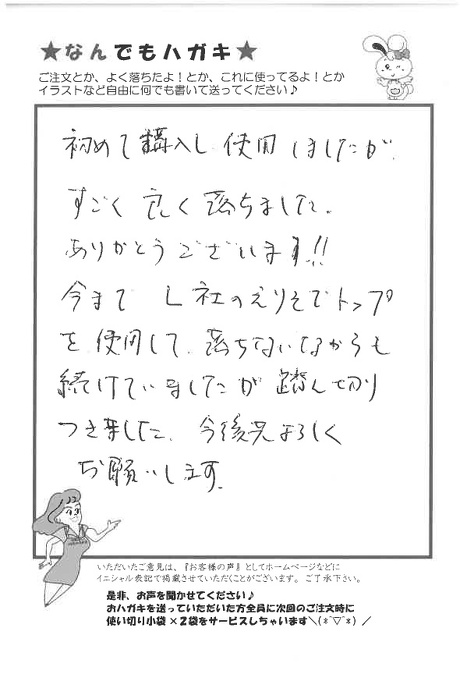 ★なんでもハガキ★
ご注文とか、よく落ちたよ！とか、これに使ってるよ！とか
イラストなど自由に何でも書いて送ってください♪
初めて購入し使用しましたが、
すごく良く落ちました。
ありがとうございます!!
今まで L社のえりそでトップ
を使用して、落ちないながらも
続けていましたが踏ん切り
つきました。今後共よろしく
お願いします。
いただいたご意見は、『お客様の声』としてホームページなどに
イニシャル表記で掲載させていただくことがございます。ご了承下さい。
是非、お声を聞かせてください♪
おハガキを送っていただいた方全員に次回のご注文時に
使い切り小袋×2袋をサービスしちゃいます＼(*^▽^*) ／